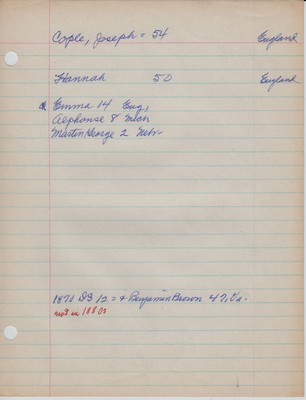 Cople, Joseph = 54 England
Hannah 50 England
Emma 14 Eng,
Alphonse 8 Mich
Martin George 2 Nebr
1870 DG 12 = + Benjamin Brown 47, Va.
not in 1880s